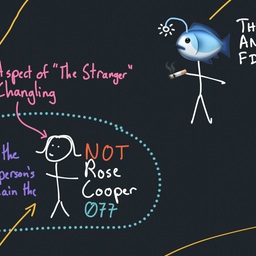 TH
AN
FI
Aspect of "The Stranger"
Changling
the
person's
ain the
NOT
Rose
Cooper
077